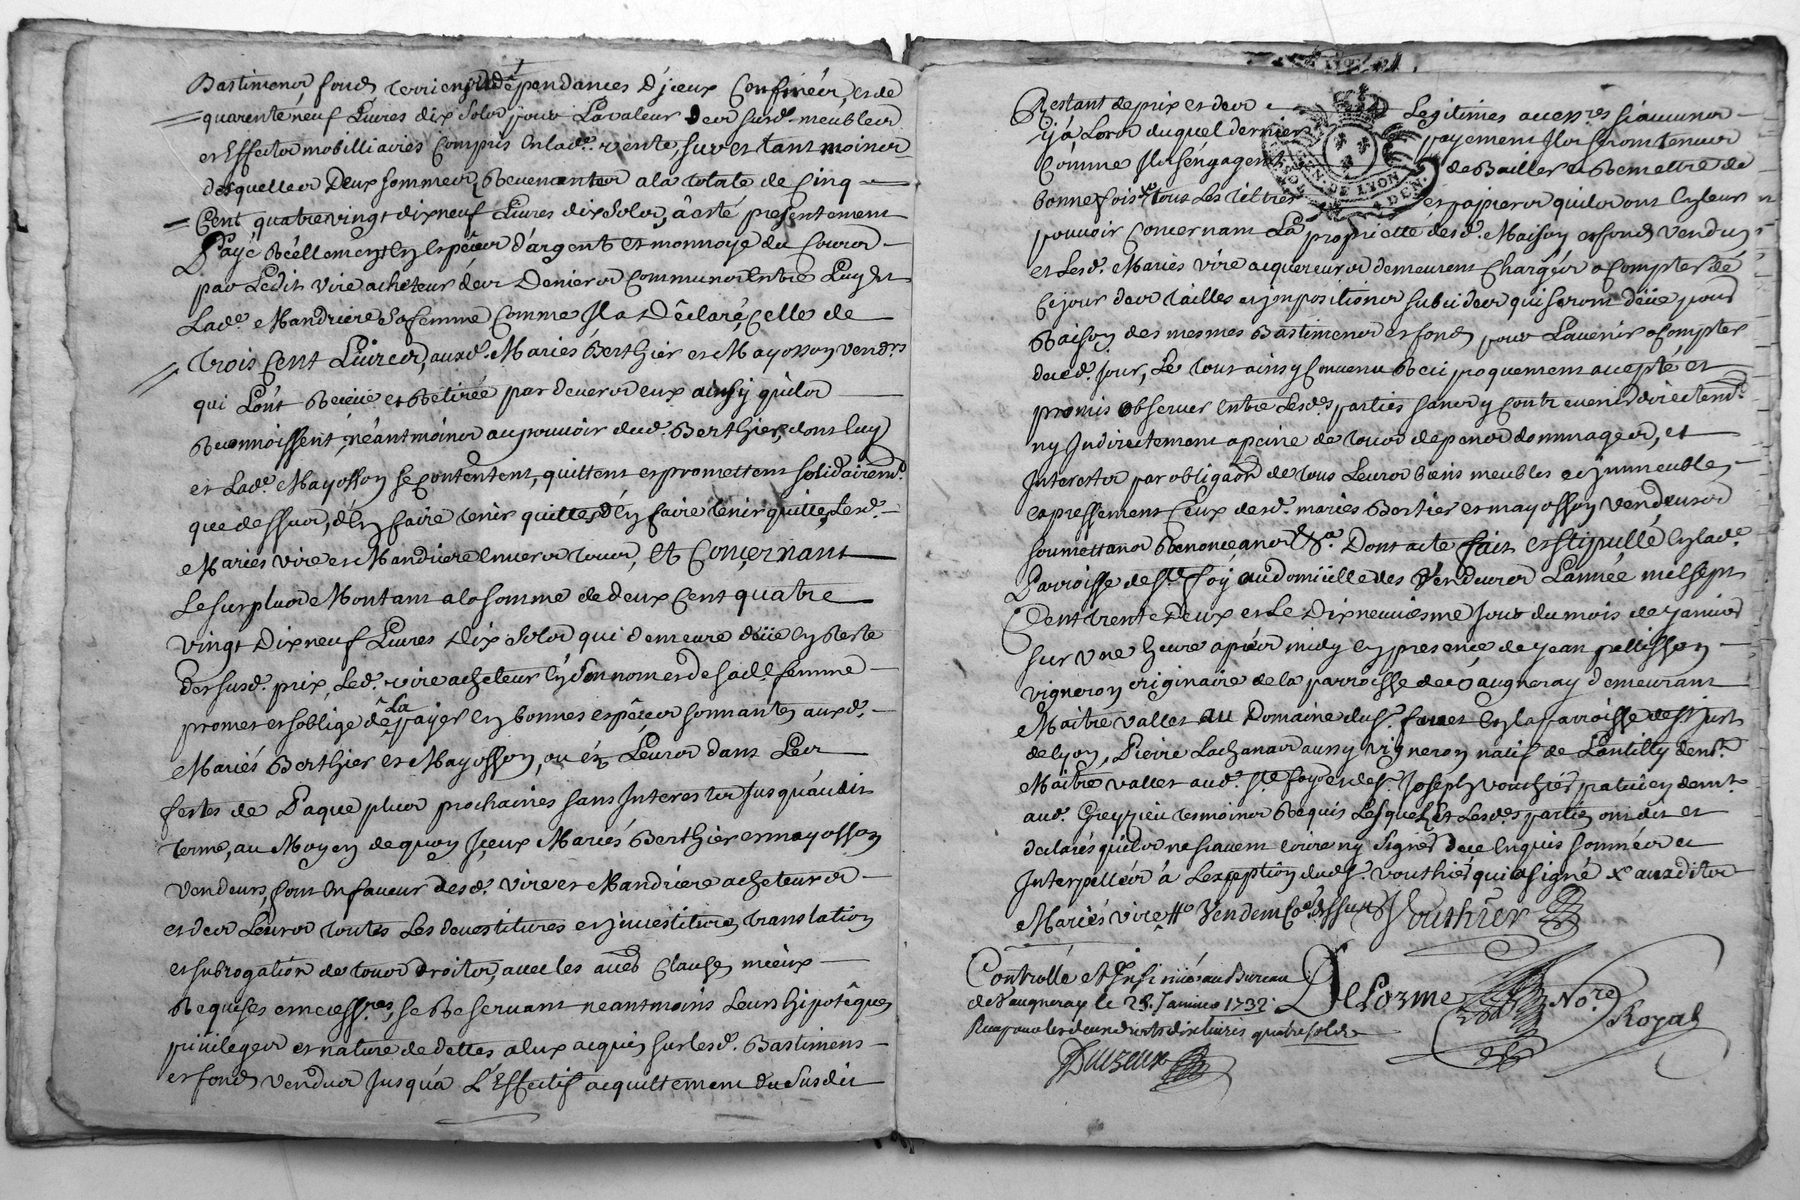 Bastimens fonds terriers et dépendances d'jceux Confinéés, et de
quarente neuf Livres dix Solz pour La valeur des susd. meubles
et Effectz mobilliaires Compris En lad.e vente, sur et tant moins
desquelles Deux sommes, Revenantes a la totale de Cinq
Cent quatre vingt dix neuf Livres dix Solz, à esté presentement
Payé Réèllement En Espèces d'argent et monnoye du Cours
par Ledit vire acheteur des Deniers Communs Entre Luy et
Lad.e Mandriere Sa femme Comme Jl a Déclaré, Celle de
trois Cent Livres, auxd. Mariés Berthier et Mayosson vend.rs
qui L'ont Reçeüe et Retirée par devers eux ainsy qu'ilz
Reconnoissent, néantmoins au pouvoir dud. Berthier, dont luy
et Lad.e Mayosson se Contentent, quittent et promettent solidairem.t
que dessus, d'En faire tenir quittes d'En faire tenir quitte, Lesd.
Mariés vire et Mandriere Envers tous, Et Conçernant
Le surplus Montant a la somme de deux Cent quatre
vingt Dix neuf Livres Dix Solz qui demeure düe En Reste
des susd. prix, Led. vire acheteur En Son nom et de sad.e femme
promet et s'oblige de La payer En bonnes espèces sonnantes auxd.
Mariés Berthier et Mayosson, ou ez Leurs dans Les
festes de Paque plus prochaines sans Jnterestz Jusqu'audit
terme, au Moyen de quoy Jceux Mariés Berthier et mayosson
vendeurs, sont En faveur desd. vire et Mandriere acheteurs
et des Leurs toutes Les devestitures et jnvestitures, translation
et subrogation de tous droitz, avec les autres Clauses mieux
Requises et necess.res, se Reservant neantmoins Leurs hipotêques
privileges et nature de dettes a Eux acquis sur lesd. Bastimens
et fonds vendus Jusqu'a L'Effectif acquittement du Susdit
Restant de prix et des Legitimes access.res si aucuns
y a Lors duquel dernier payement Jlz seront tenus
Comme Jlz s'engagent de Bailler et Remettre de
bonne foi x tous Les tiltres et papiers qu'ilz ont En leur
pouvoir Concernant La proprietté desd. Maison et fonds vendus
et Lesd. Mariés vire acquereurs demeurent Chargés a Compter de
Ce jour des tailles et jmpositions subcides qui seront düe pour
Raison des mesmes Bastimens et fonds pour L'avenir a Compter
de ced. jour, Le tout ainsy Convenu Reciproquement accepté et
promis observer Entre Lesd.es parties sans y Contrevenir directem.t
ny Jndirectement a peine de tous depens dommages, et
Jnterestz par obliga'on de tous Leurs biens meubles et jmmeubles
expressement Ceux desd. mariés Bertier et mayosson vendeurs
soumettans Renonceans &.a Dont acte fait et stipullé En lad.e
Parroisse de S.te foy au domicille des Vendeurs L'année mil sept
Cent trente Deux et Le Dix neuviesme Jour du mois de Janvier
sur une heure après midy En presence de Jean pellisson
vigneron originaire de la parroisse de Vaugneray demeurant
Maître vallet au Domaine du s.r fauet En la parroisse de S.t Just
de Lyon, Pierre Lachanas aussy vigneron natif de Lantilly dem.t
Maître vallet aud. S.te foy et de s.r Joseph vouthier praticien dem.t
aud. Greyzieu tesmoins Requis Lesquelz et Lesd.es parties ont dit et
declarés qu'ilz ne sçavent Ecrire ny Signer de ce Enquis sommés et
Jnterpellés à L'exception dud. s.r Vouthier qui a signé x auxditz
Mariés vire
Vouthier
Controllé et Jnsinué au Bureau
de Vaugneray le 28. Janvier 1732.
Delorme Nore
Royal
Reçu pour les deux droits dix livres quatre sols
GEN. DE LYON
4 DEN.